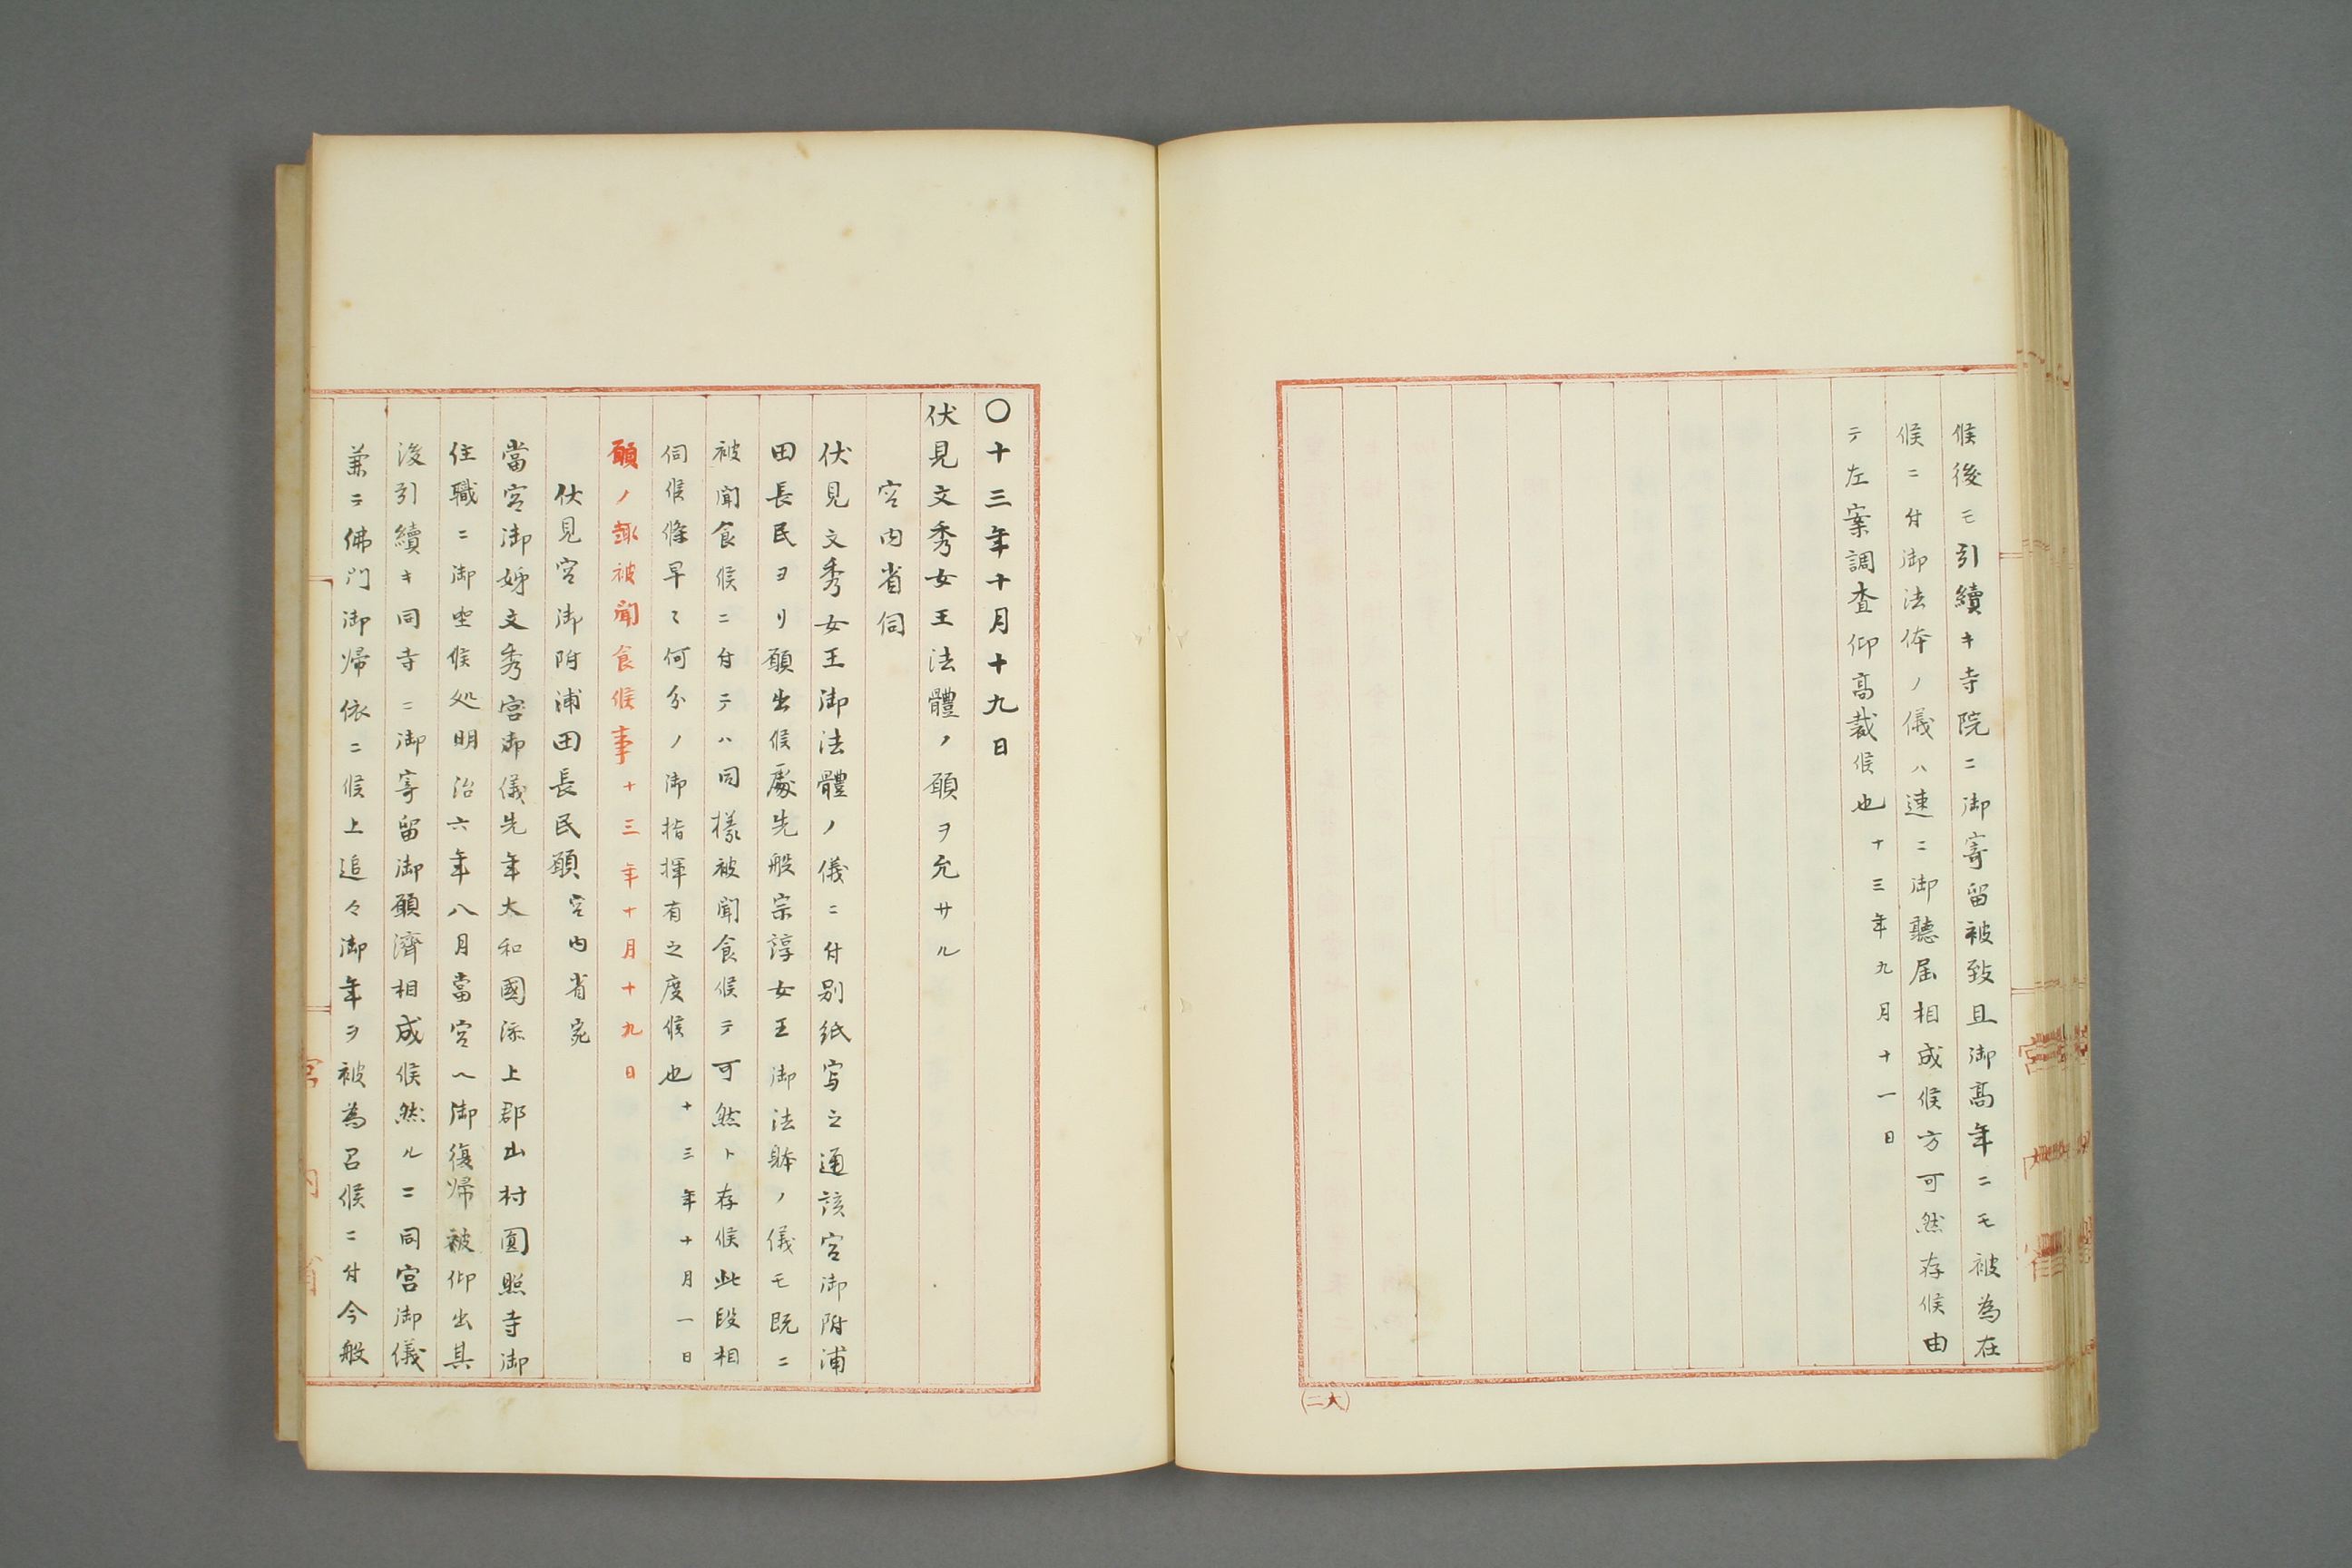 候後モ引續キ寺院ニ御寄留被致且御髙年ニモ被為在
候ニ付御法体ノ儀ハ速ニ御聽届相成候方可然存候由
テ左案調査仰高裁候也十三年九月十一日
(二六)
〇十三年十月十九日
伏見文秀女王法體ノ願ヲ允サル
宮内省伺
伏見文秀女王御法體ノ儀ニ付別紙写之通該宮御附浦
田長民ヨリ願出候處先般宗諄女王御法躰ノ儀モ既ニ
被聞食候ニ付テハ同様被聞食候テ可然ト存候此段相
伺候條早々何分ノ御指揮有之度候也十三年十月一日
願ノ趣被聞食候事十三年十月十九日
伏見宮御附浦田長民願宮内省宛
當宮御姉文秀宮御儀先年大和國添上郡山村圓照寺御
住職ニ御坐候処明治六年八月當宮へ御復帰被仰出其
後引續キ同寺ニ御寄留御願濟相成候然ルニ同宮御儀
兼テ佛門御帰依ニ候上追々御年ヲ被為召候ニ付今般
宮内省